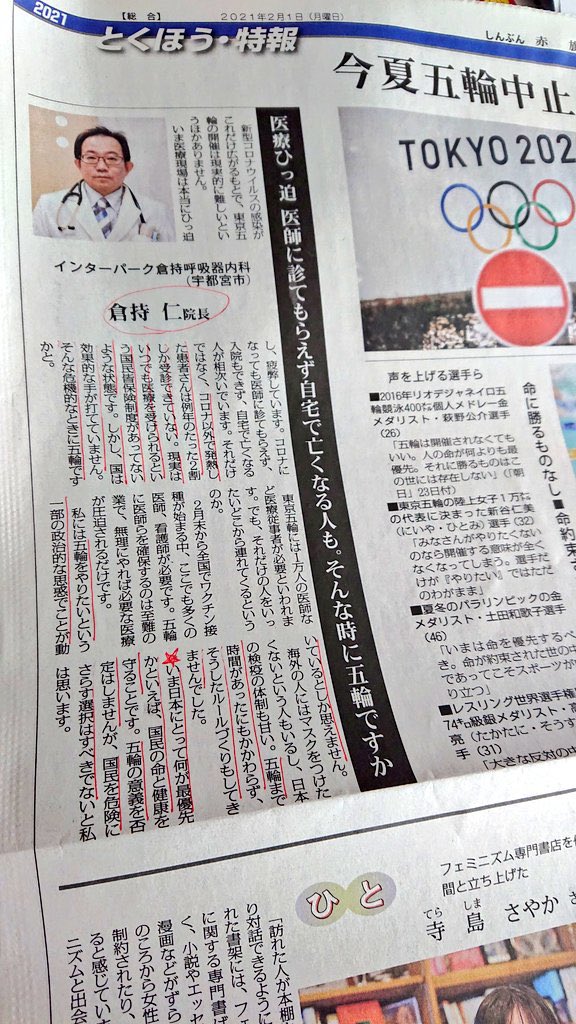 2021
【総合】
2021年2月1日(月曜日)
しんぶん 赤
とくほう・特報
今夏五輪中止
TOKYO 202
医療ひっ迫 医師に診てもらえず自宅で亡くなる人も。そんな時に五輪ですか
新型コロナウイルスの感染が
これだけ広がるもとで、東京五
輪の開催は現実的に難しいとい
うほかありません。
いま医療現場は本当にひっ迫
インターパーク倉持呼吸器内科
(宇都宮市)
倉持 仁院長
し、疲弊しています。コロナに
なっても医師に診てもらえず、
入院もできず、自宅で亡くなる
人が相次いでいます。それだけ
ではなく、コロナ以外で発熱し
た患者さんは例年のたった2割
しか受診できていない。現実は
いつでも医療を受けられるとい
う国民皆保険制度があってない
ような状態です。しかし、国は
効果的な手が打てていません。
そんな危機的なときに五輪です
かと。
東京五輪には1万人の医師な
ど医療従事者が必要といわれま
す。でも、それだけの人をいっ
たいどこから連れてくるという
のか。
2月末から全国でワクチン接
種が始まる中、ここでも多くの
医師、看護師が必要です。五輪
に医師らを確保するのは至難の
業で、無理にやれば必要な医療
が圧迫されるだけです。
私には五輪をやりたいという
一部の政治的な思惑でことが動
いているとしか思えません。
海外の人にはマスクをつけた
くないという人もいるし、日本
の検疫の体制も甘い。五輪まで
時間があったにもかかわらず、
そうしたルールづくりもしてき
ませんでした。
いま日本にとって何が最優先
かといえば、国民の命と健康を
守ることです。五輪の意義を否
定はしませんが、国民を危険に
さらす選択はすべきでないと私
は思います。
声を上げる選手ら
■2016年リオデジャネイロ五
輪競泳400㍍個人メドレー金
メダリスト・萩野公介選手
(26)
「五輪は開催されなくてもい
い。人の命が何よりも最
優先。それに勝るものはこ
の世には存在しない」(「朝
日」23日付)
■東京五輪の陸上女子1万㍍
の代表に決まった新谷仁美
(にいや・ひとみ)選手(32)
「みなさんがやりたくない
のなら開催する意味が全く
なくなってしまう。選手だ
けが『やりたい』ではただ
のわがまま」
■夏冬のパラリンピックの金
メダリスト・土田和歌子選手
(46)
「いまは命を優先するべ
き。命が約束された世の中
であってこそスポーツが
り立つ」
■レスリング世界選手権
74㌔級銀メダリスト・高
亮(たかたに・そうす
(31)
「大きな反対の中
命に勝るものなし
命 約束
ひと
フェミニズム専門書店を
間と立ち上げた
てら しま
寺島 さやか
「訪れた人が本棚
り対話できるように
れた書架には、フェ
に関する専門書ば
く、小説やエッセ
漫画などがずら
のころから女性
制約されたり、
ると感じてい
ニズムと出会